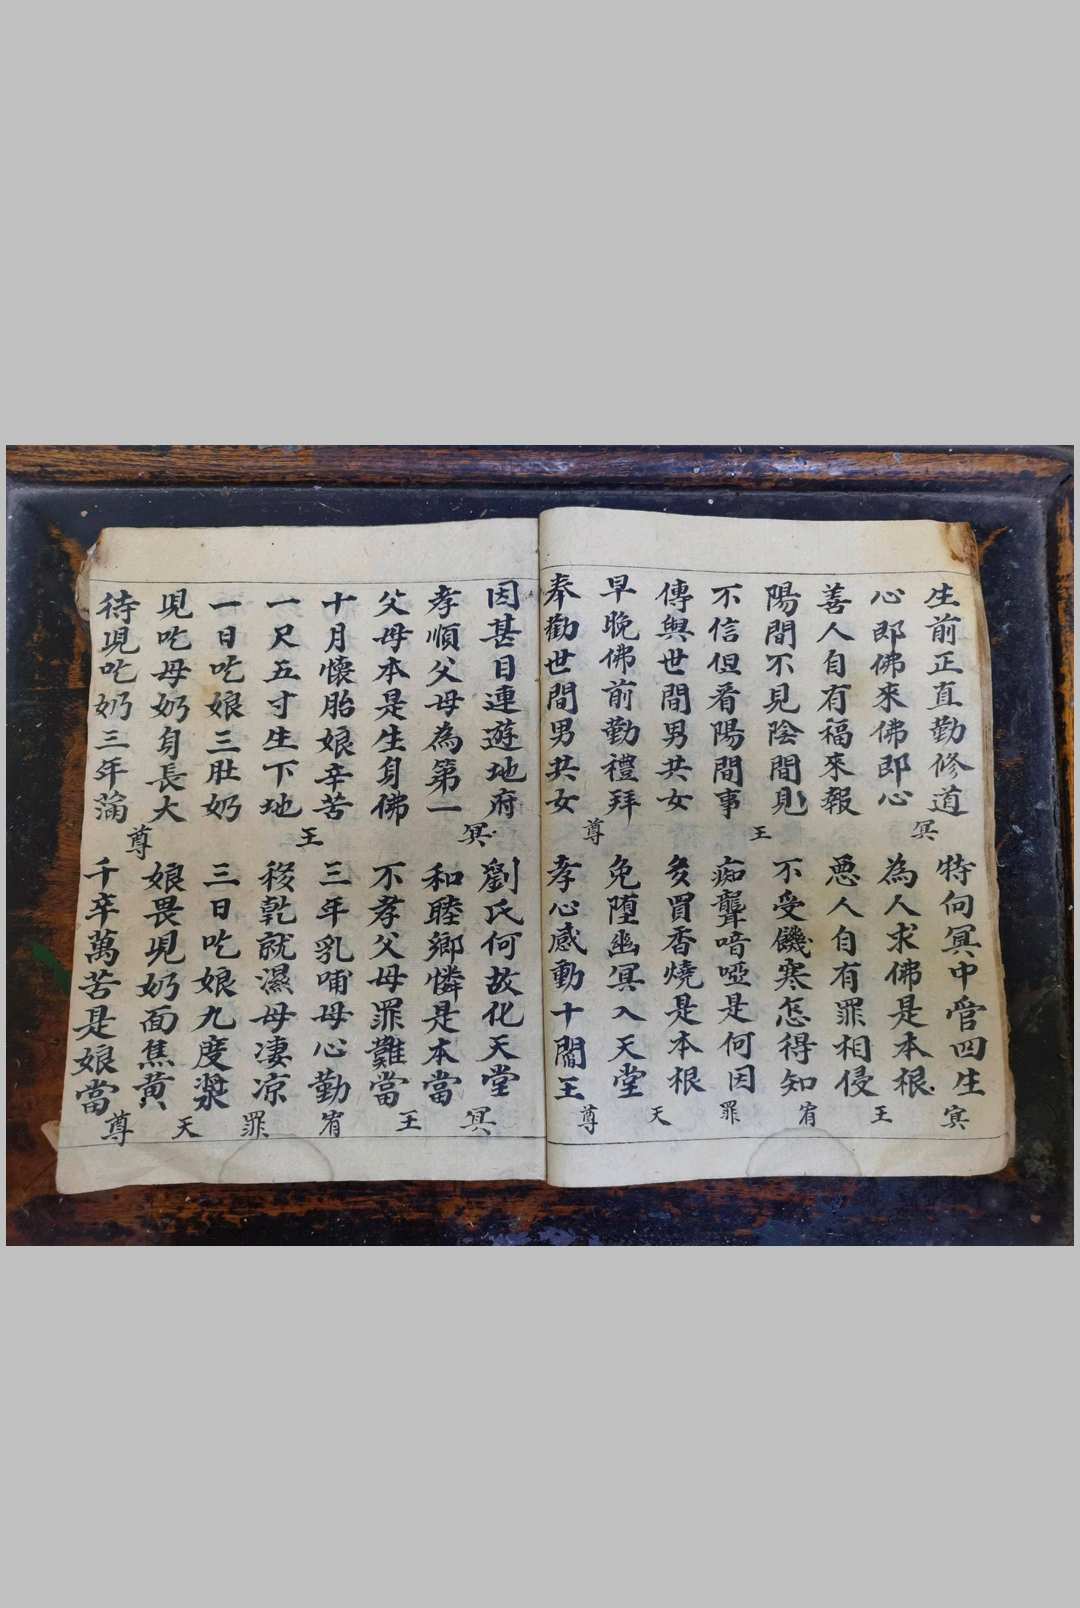 生前正直勤修道
特向冥中管四生
心即佛來佛即心
為人求佛是本根
善人自有福來報
惡人自有罪相侵
陽間不見陰間見
不受饑寒怎得知
不信但看陽間事
痴聾喑啞是何因
傳與世間男共女
多買香燒是本根
早晚佛前勤禮拜
免墮幽冥入天堂
奉勸世間男共女
孝心感動十閻王
冥 王 尊
冥 王 宥 罪 天 尊
因甚目連遊地府
劉氏何故化天堂
孝順父母為第一
和睦鄉憐是本當
父母本是生身佛
不孝父母罪難當
十月懷胎娘辛苦
三年乳哺母心勤
一尺五寸生下地
移乾就濕母凄凉
一日吃娘三肚奶
三日吃娘九度漿
児吃母奶身長大
娘畏児奶面焦黃
待児吃奶三年滿
千辛萬苦是娘當
冥 王 尊
冥 王 宥 罪 天 尊